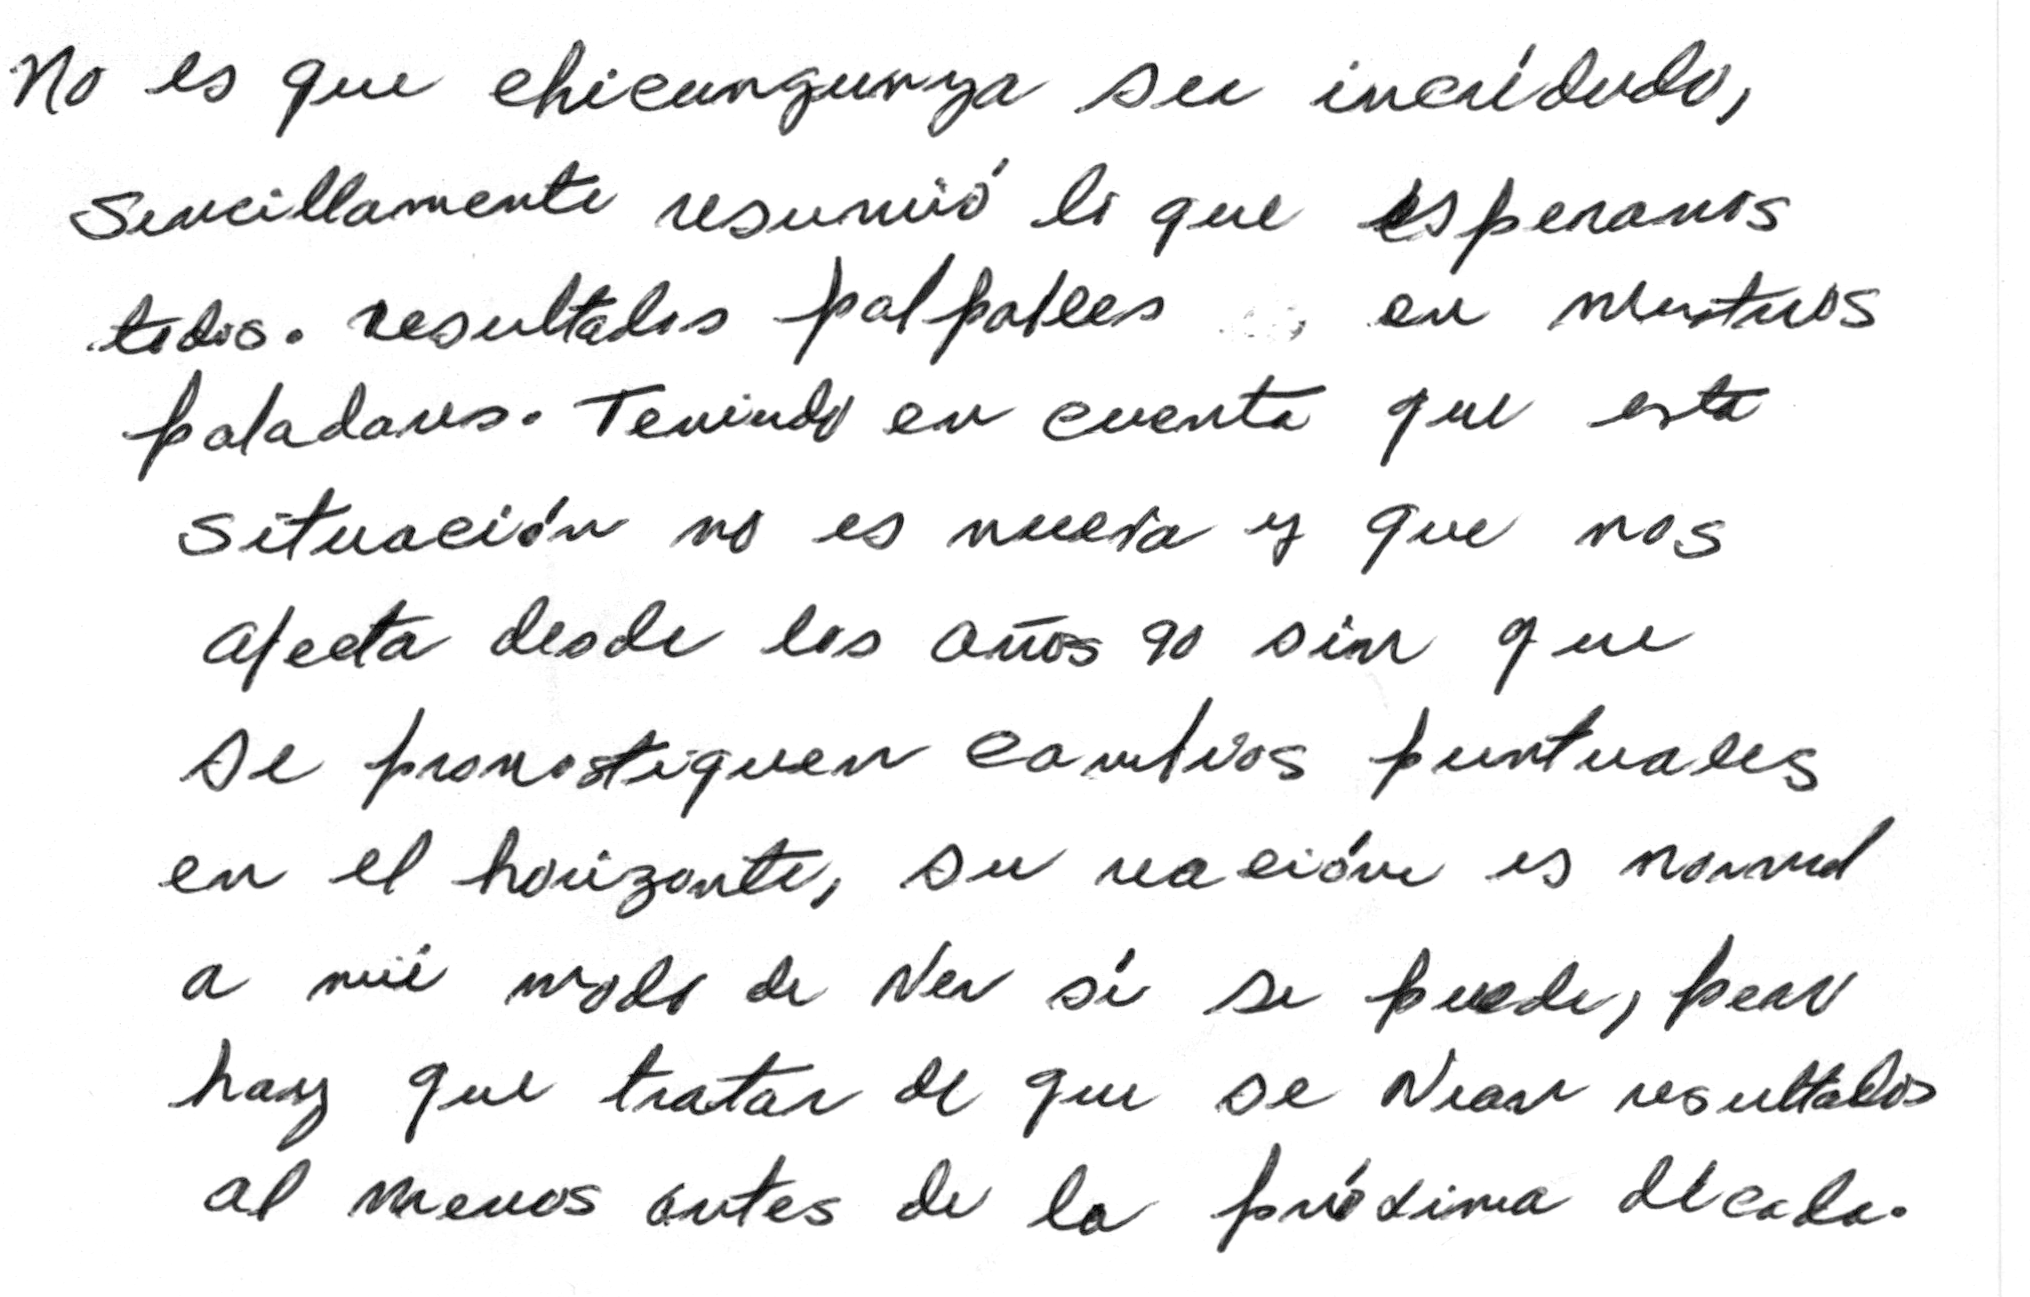 No es que chicungunya sea incrédudo,
Sencillamente resumió lo que esperamos
todos. resultados palpables en nuestros
paladares. Teniendo en cuenta que esta
situación no es nueva y que nos
afecta desde los años 90 sin que
se pronostiquen cambios puntuales
en el horizonte, su reación es normal
a mi modo de ver sí se puede, pero
hay que tratar de que se vean resultados
al menos antes de la próxima década.